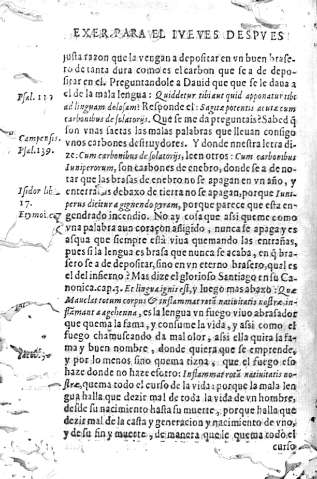 EXER. PARA EL IVEVES DESPVES
justa razon que la vengan a depositar en vn buen brase-
ro de tanta dura como es el carbon que se a de depo-
sitar en el. Preguntandole a Dauid que que se le daua a
el de la mala lengua: Quid detur tibi aut quid apponatur tibi
ad linguam dolosam? Responde el: Sagitæ potentis acutæ cum
carbonibus desolatorijs. Que se me da preguntais? Sabed q̃
son vnas saetas las malas palabras que lleuan consigo
vnos carbones destruydores. Y donde nuestra letra di-
ze: Cum carbonibus desolatorijs, leen otros: Cum carbonibus
Iuniperorum, son carbones de enebro, donde se a de no-
tar que las brasas de enebro no se apagan en vn año, y
enterradas debaxo de tierra no se apagan, porque Iuni-
perus dicitur a gignendo pyram, porque parece que esta en-
gendrado incendio. No ay cosa que assi queme como
vna palabra a un coraçon afligido, nunca se apaga y es
asqua que siempre està viua quemando las entrañas,
pues si la lengua es brasa que nunca se acaba, en q̃ bra-
sero se a de depositar, sino en vn eterno brasero, qual es
el del infierno? Mas dize el glorioso Santiago en su Ca-
nonica cap. 3. Et lingua ignis est, y luego mas abaxo: Quæ
Maculat totum corpus & inflammat rotã natiuitatis nostræ in-
flamant a gehenna, es la lengua vn fuego viuo abrasador
que quema la fama, y consume la vida, y assi como el
fuego chamuscando da mal olor, assi ella quita la fa-
ma y buen nombre, donde quiera que se emprende,
y por lo menos, sino quema tizna, que el fuego eso
haze donde no haze esotro: Inflammat rotã natiuitatis no-
stræ, quema todo el curso de la vida: porque la mala len
gua halla que dezir mal de toda la vida de vn hombre,
desde su nacimiento hasta su muerte, porque halla que
dezir mal de la casta y generacion y nacimiento de vno,
y de su fin y muerte, de manera que le quema todo el
curso
Psal. 11
Campensis.
Psal. 139.
Isidor lib.
17.
Etymol. c.